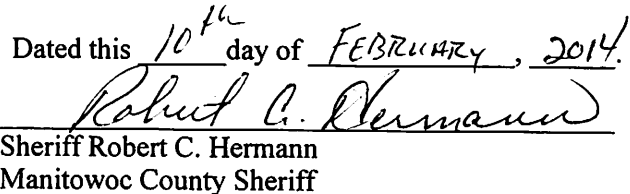 Dated this 10th day of FEBRUARY, 2014.
Robert C. Hermann
Sheriff Robert C. Hermann
Manitowoc County Sheriff